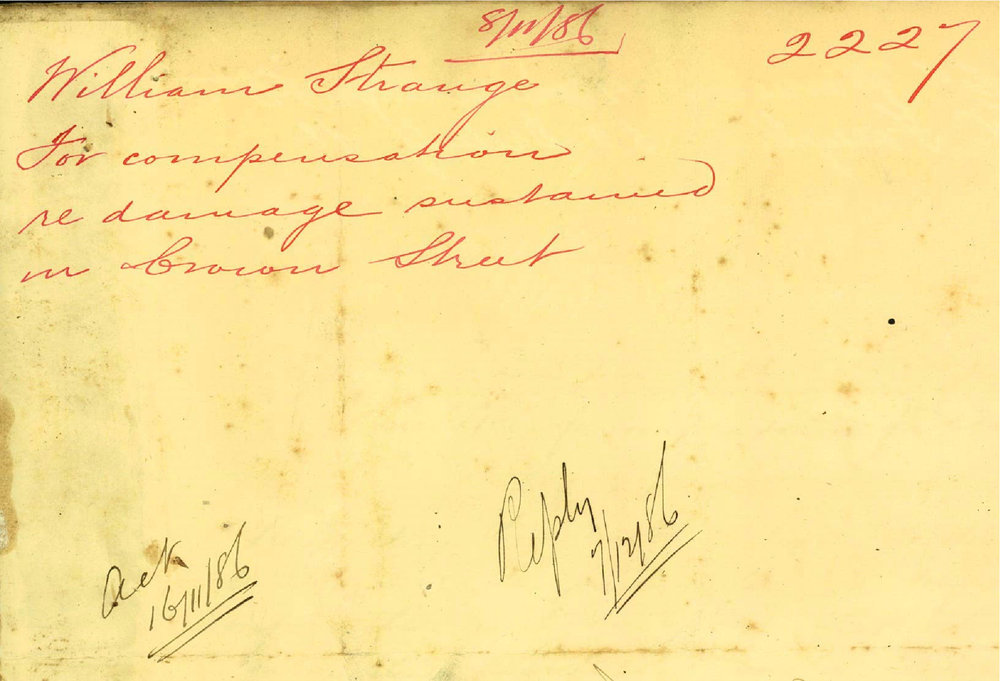 8/11/86
2227
William Strange
For compensation
re damage sustained
in Crown Street
Ack
16/11/86
Reply
7/12/86